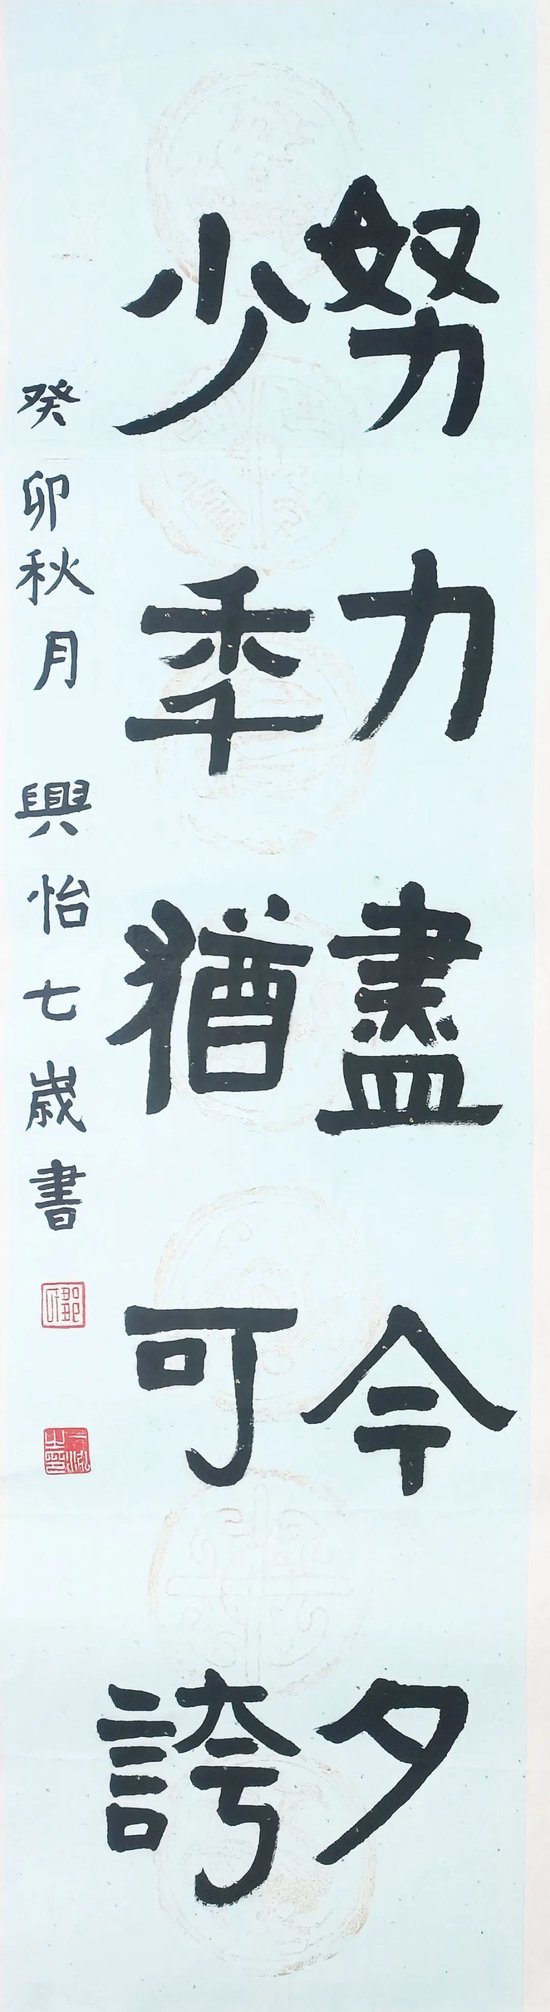 努力盡今夕
少秊猶可誇
癸卯秋月 興怡七歲書
鄒